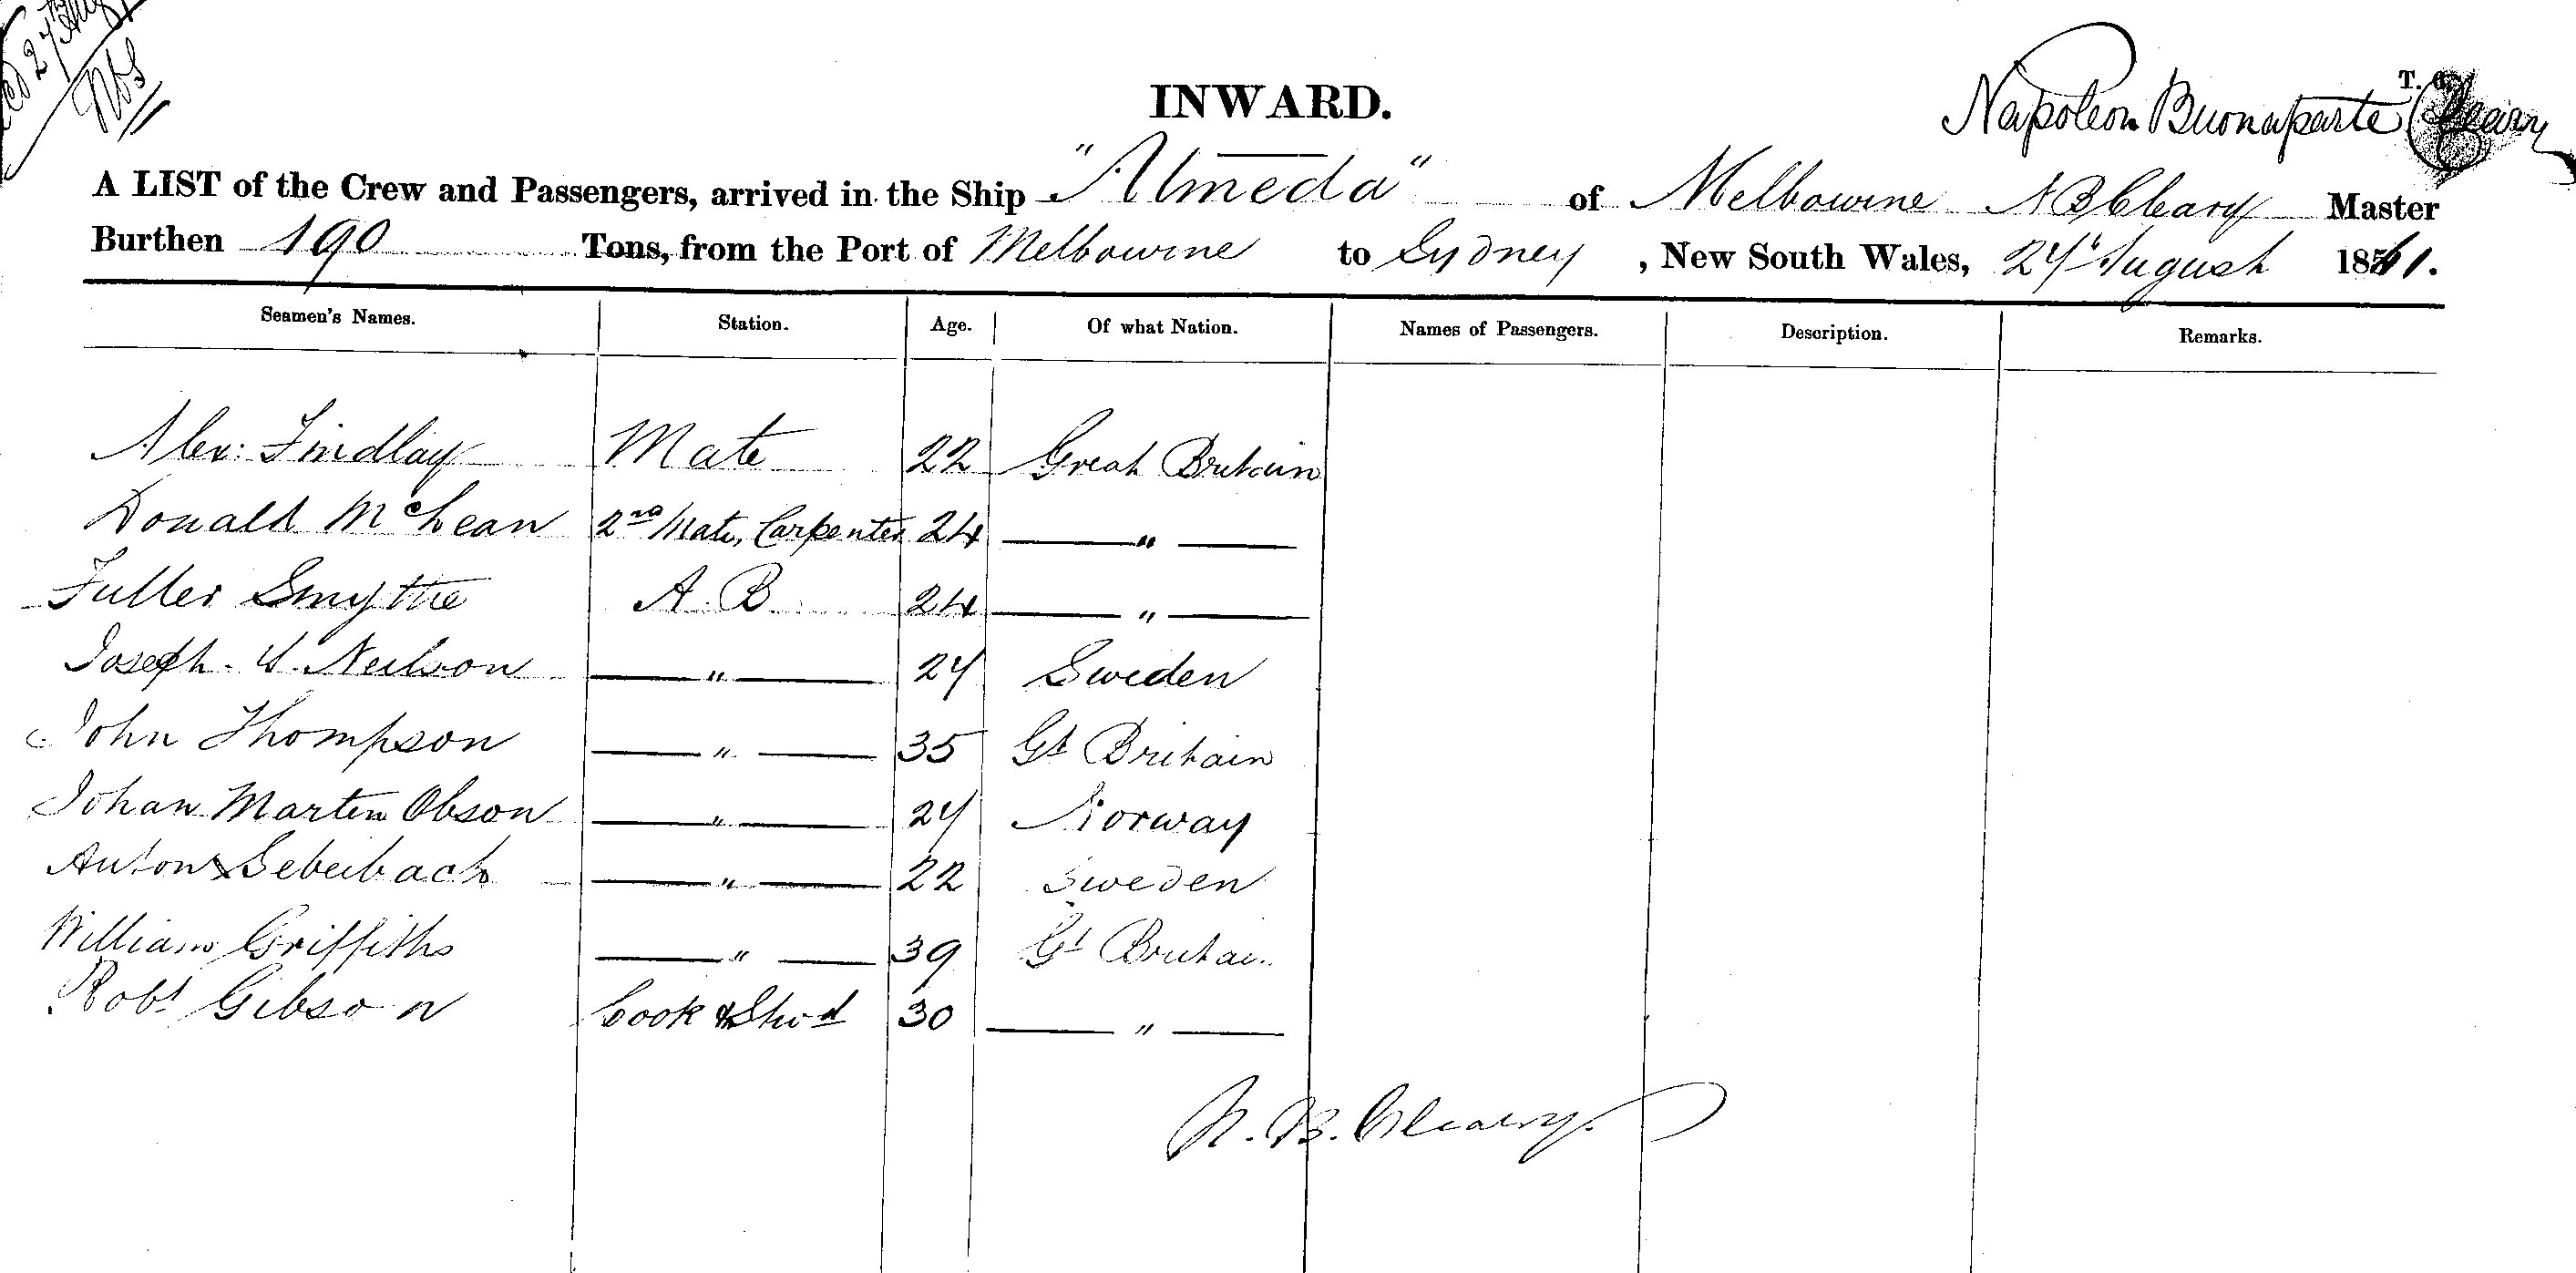 27th Aug
INWARD.
T. G.
Napoleon Buonaparte Cleary
A LIST of the Crew and Passengers, arrived in the Ship "Almeda" of Melbourne N B Cleary Master
Burthen 190 Tons, from the Port of Melbourne to Sydney, New South Wales, 27th August 1861.
Seamen's Names. Station. Age. Of what Nation. Names of Passengers. Description. Remarks.
Alex: Findlay Mate 22 Great Britain
Donald McLean 2nd Mate, Carpenter 24 — " —
Fuller Smythe A. B 24 — " —
Joseph. W. Neilson — " — 27 Sweden
John Thompson — " — 35 Gt Britain
Johan Martin Obson — " — 27 Norway
Anton Sebeibach — " — 22 Sweden
William Griffiths — " — 39 Gt Britain
Robt Gibson Cook & Stwd 30 — " —
N. B. Cleary.